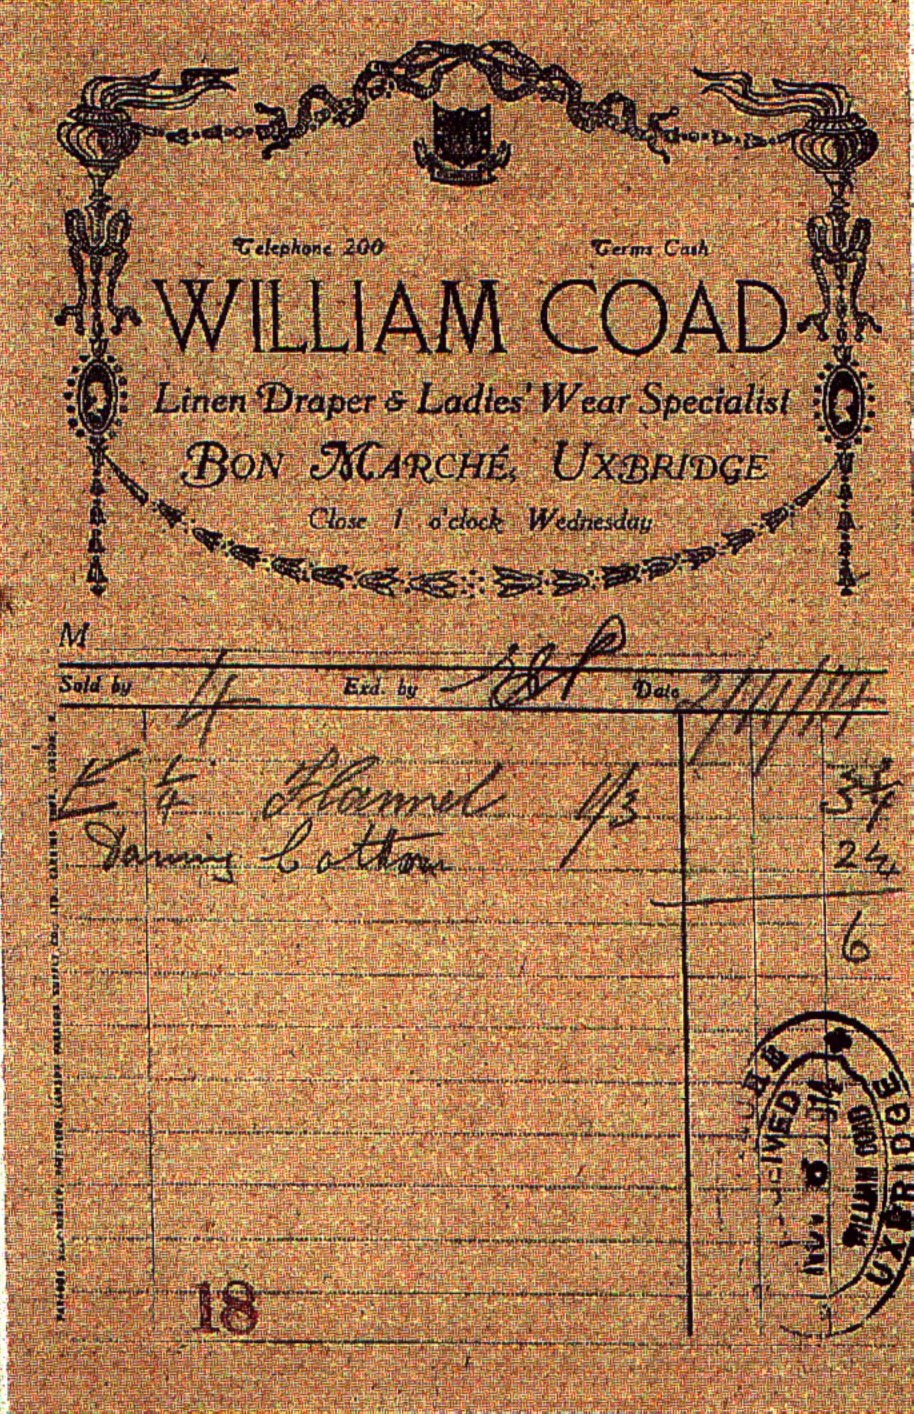 Telephone 200 Terms Cash
WILLIAM COAD
Linen Draper & Ladies' Wear Specialist
BON MARCHÉ, UXBRIDGE
Close 1 o'clock Wednesday
M
Sold by 4 Exd. by Date 2/11/14
1/4 Flannel 1/3 3 3/4
Darning Cotton 2 1/4
6
RECEIVED
NOV 1914
WILLIAM COAD
UXBRIDGE
18